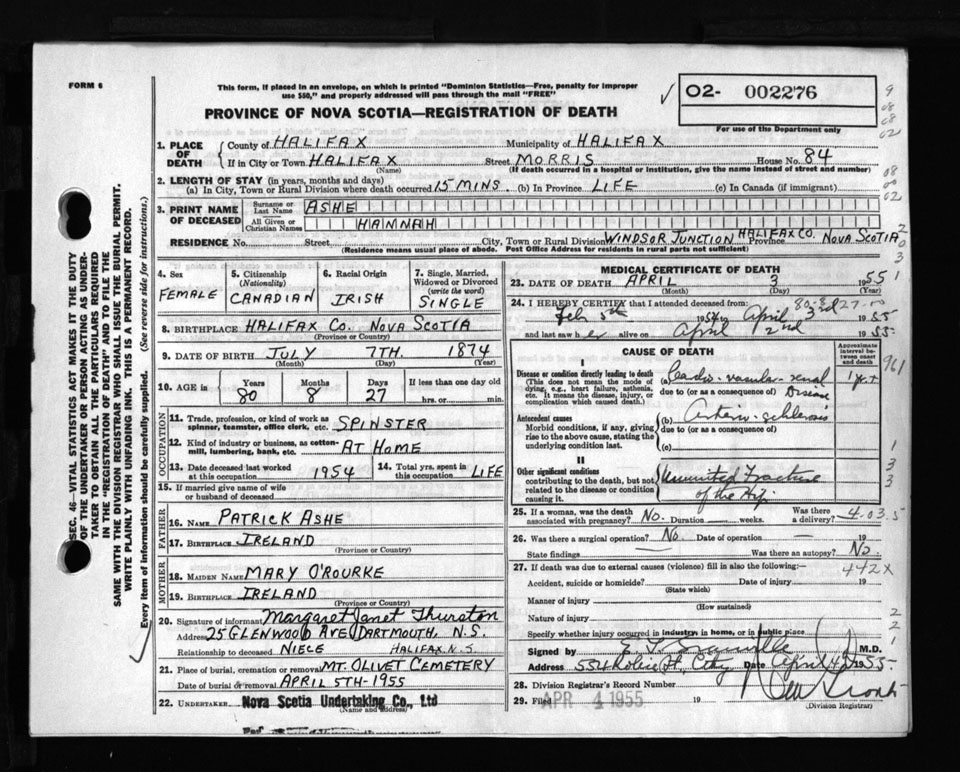 FORM 6
This form, if placed in an envelope, on which is printed "Dominion Statistics—Free, penalty for improper
use $50," and properly addressed will pass through the mail "FREE"
PROVINCE OF NOVA SCOTIA—REGISTRATION OF DEATH
✓ 02- 002276
For use of the Department only
9
08
08
02
08
00
02
2
0
3
SEC. 46—VITAL STATISTICS ACT MAKES IT THE DUTY
OF THE UNDERTAKER OR PERSON ACTING AS UNDER-
TAKER TO OBTAIN ALL THE PARTICULARS REQUIRED
IN THE "REGISTRATION OF DEATH" AND TO FILE THE
SAME WITH THE DIVISION REGISTRAR WHO SHALL ISSUE THE BURIAL PERMIT.
WRITE PLAINLY WITH UNFADING INK. THIS IS A PERMANENT RECORD.
Every item of information should be carefully supplied. (See reverse side for instructions.)
1. PLACE OF DEATH { County of HALIFAX Municipality of HALIFAX
If in City or Town HALIFAX Street MORRIS House No. 84
(Name) (If death occurred in a hospital or institution, give the name instead of street and number)
2. LENGTH OF STAY (in years, months and days)
(a) In City, Town or Rural Division where death occurred 15 MINS. (b) In Province LIFE (c) In Canada (if immigrant)
3. PRINT NAME OF DECEASED { Surname or Last Name ASHE
All Given or Christian Names HANNAH
RESIDENCE No. Street City, Town or Rural Division WINDSOR JUNCTION HALIFAX CO. Province NOVA SCOTIA
(Residence means usual place of abode. Post Office Address for residents in rural parts not sufficient)
4. Sex FEMALE
5. Citizenship (Nationality) CANADIAN
6. Racial Origin IRISH
7. Single, Married, Widowed or Divorced (write the word) SINGLE
8. BIRTHPLACE HALIFAX CO. NOVA SCOTIA
(Province or Country)
9. DATE OF BIRTH JULY 7TH. 1874
(Month) (Day) (Year)
10. AGE in Years 80 Months 8 Days 27 If less than one day old hrs. or min.
OCCUPATION
11. Trade, profession, or kind of work as spinner, teamster, office clerk, etc. SPINSTER
12. Kind of industry or business, as cotton-mill, lumbering, bank, etc. AT HOME
13. Date deceased last worked at this occupation 1954 14. Total yrs. spent in this occupation LIFE
15. If married give name of wife or husband of deceased
FATHER
16. NAME PATRICK ASHE
17. BIRTHPLACE IRELAND
(Province or Country)
MOTHER
18. MAIDEN NAME MARY O'ROURKE
19. BIRTHPLACE IRELAND
(Province or Country)
20. Signature of informant Margaret Janet Thurston
Address 25 GLENWOOD AVE DARTMOUTH, N.S.
Relationship to deceased NIECE HALIFAX N.S.
21. Place of burial, cremation or removal MT. OLIVET CEMETERY
Date of burial or removal APRIL 5TH-1955
22. UNDERTAKER Nova Scotia Undertaking Co., Ltd
(Name and Address)
MEDICAL CERTIFICATE OF DEATH
23. DATE OF DEATH APRIL 3 1955 1
(Month) (Day) (Year)
80-8-27-00
24. I HEREBY CERTIFY that I attended deceased from:
Feb 5th 1954 to April 3rd 1955
and last saw her alive on April 2nd 1955
CAUSE OF DEATH
Approximate interval between onset and death
I
Disease or condition directly leading to death
(This does not mean the mode of dying, e.g., heart failure, asthenia, etc. It means the disease, injury, or complication which caused death.)
(a) Cardio-vascular-renal Disease 1 yr +
due to (or as a consequence of)
961
Antecedent causes
Morbid conditions, if any, giving rise to the above cause, stating the underlying condition last.
(b) Arterio-schlerosis
due to (or as a consequence of)
(c)
1
3
3
II
Other significant conditions
contributing to the death, but not related to the disease or condition causing it.
Ununited Fracture of the Hip
25. If a woman, was the death associated with pregnancy? No. Duration weeks. Was there a delivery?
4-03.5
26. Was there a surgical operation? No Date of operation — 19
State findings — Was there an autopsy? No.
27. If death was due to external causes (violence) fill in also the following:— 442X
Accident, suicide or homicide? Date of injury 19
(State which)
Manner of injury
(How sustained)
Nature of injury
Specify whether injury occurred in industry, in home, or in public place
2
2
1
Signed by M.D.
Address 554 Robie St. City Date April 4 1955
28. Division Registrar's Record Number
29. Filed APR 4 1955 19
(Division Registrar)